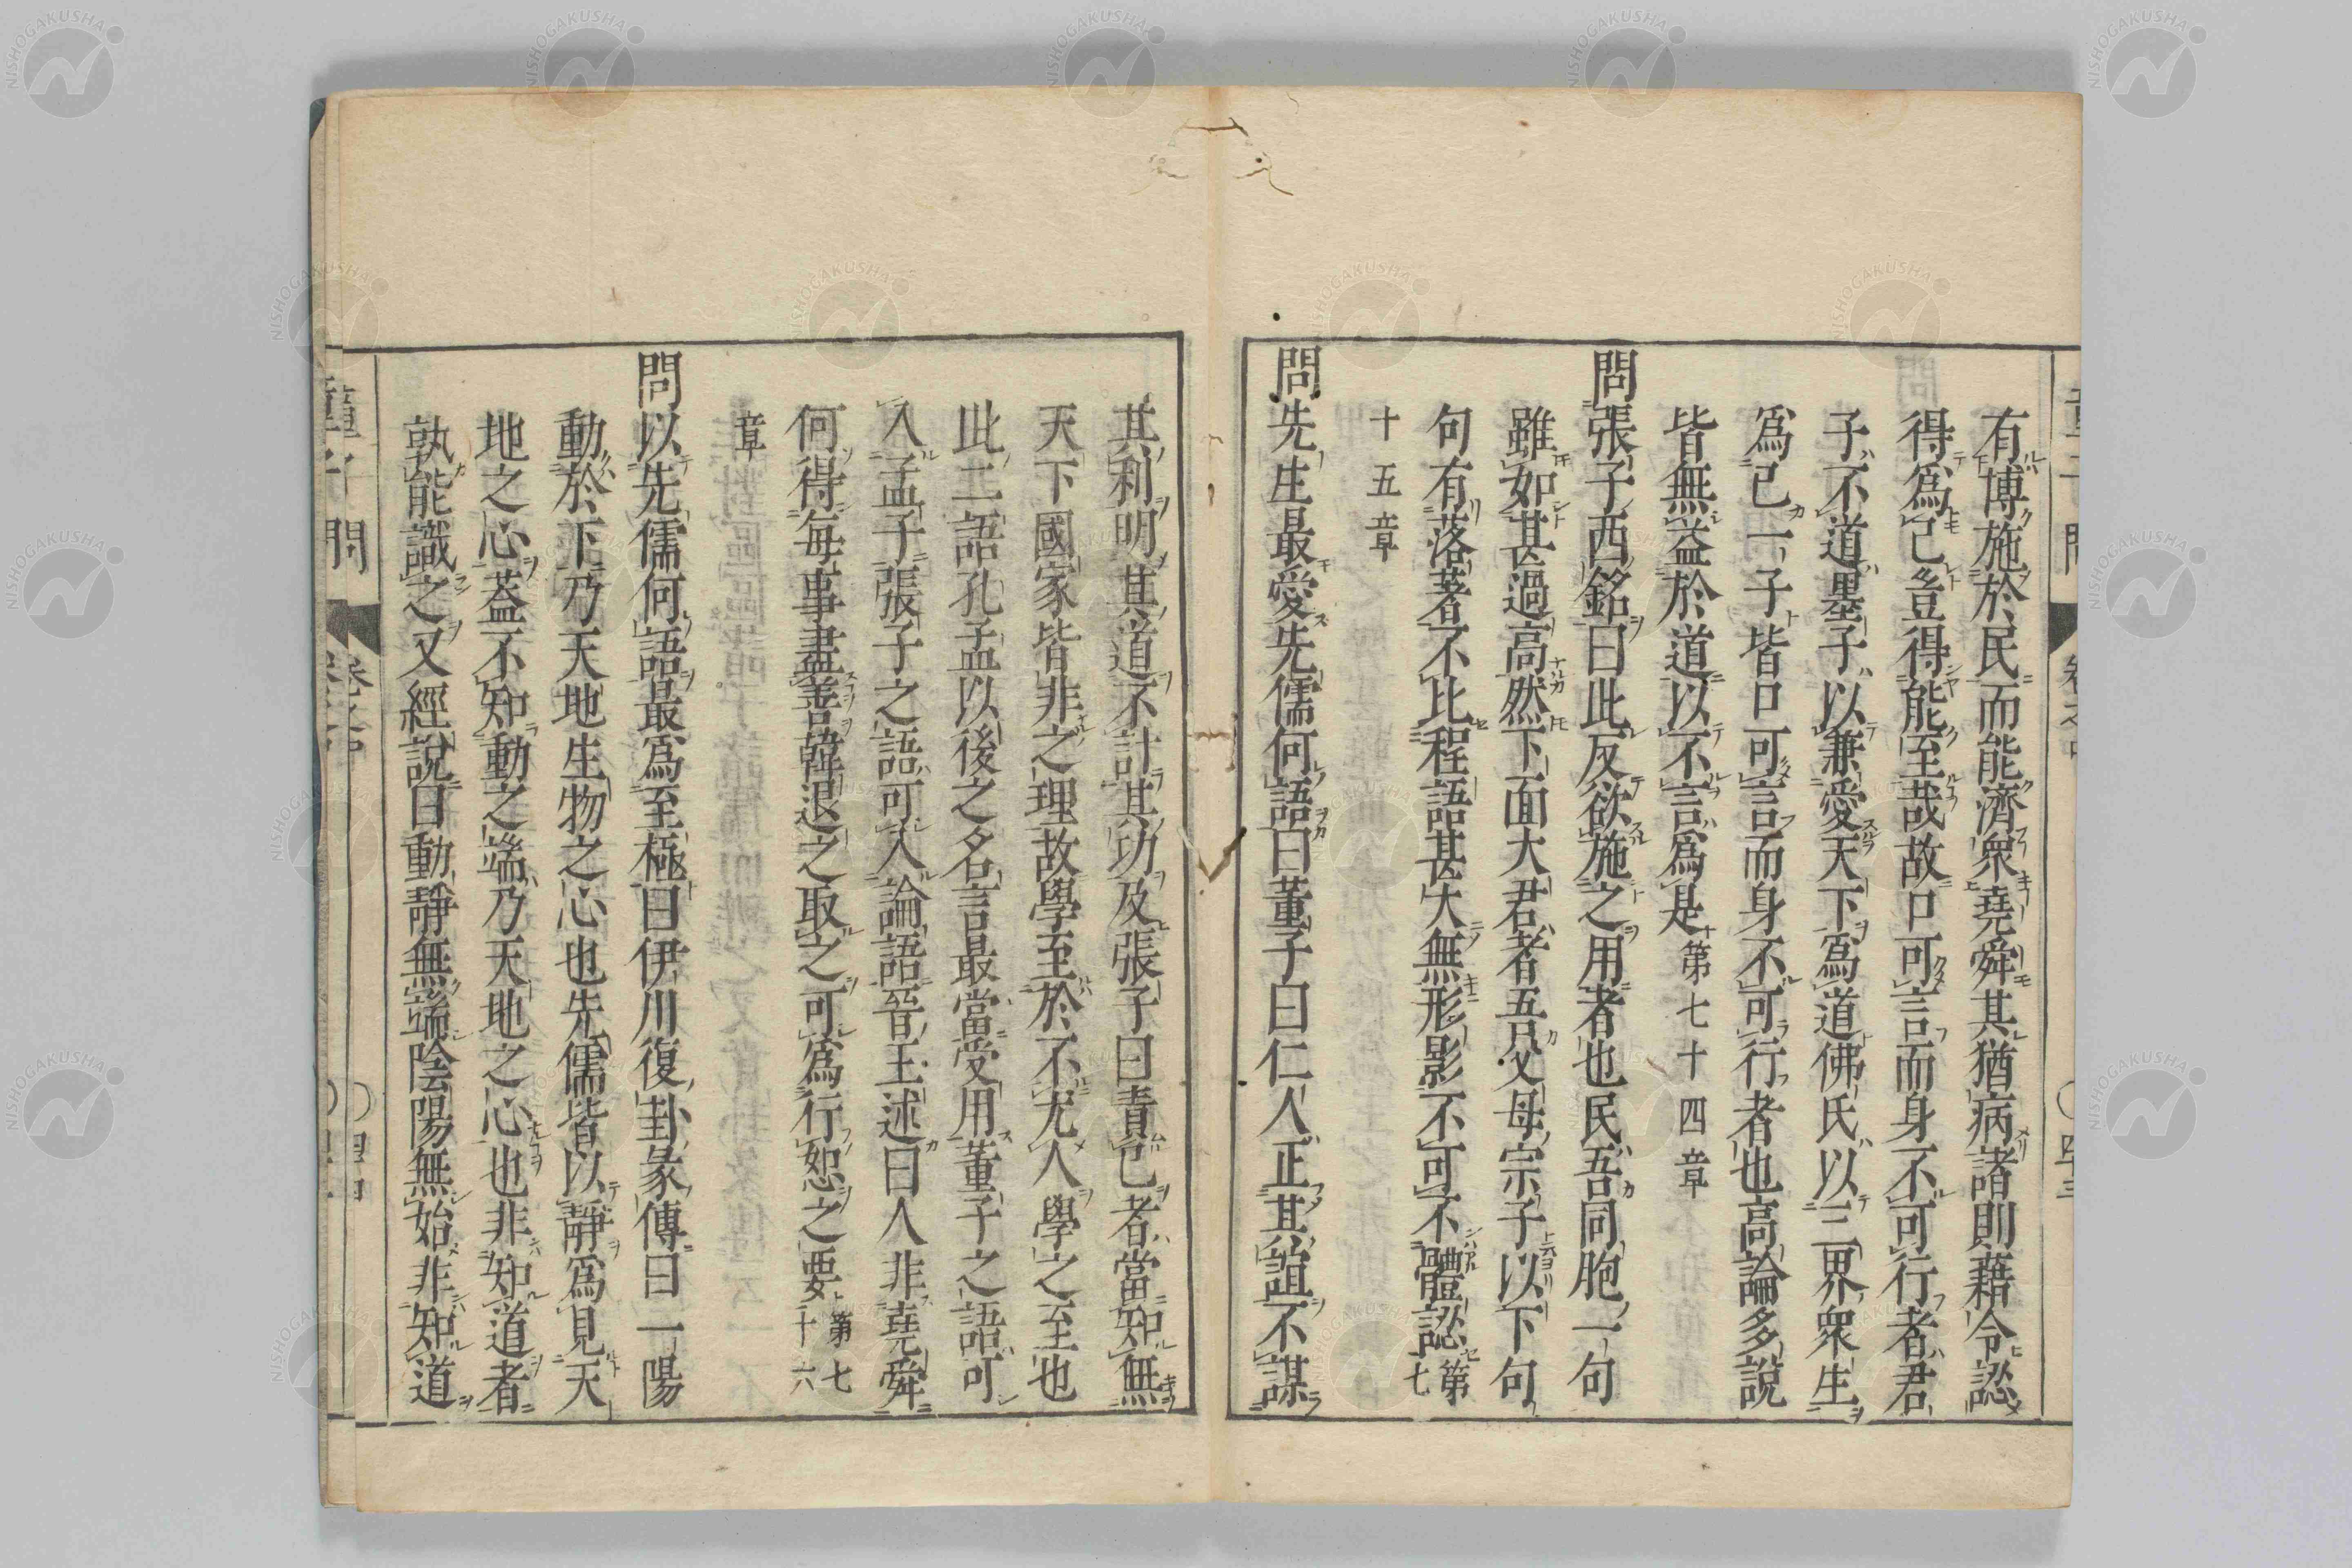 有博施於民而能濟衆堯舜其猶病諸則藉令認
得爲己豈得能至哉故口可言而身不可行者君
子不道墨子以兼愛天下爲道佛氏以三界衆生
爲己一子皆口可言而身不可行者也高論多說
皆無益於道以不言爲是第七十四章
問張子西銘曰此反欲施之用者也民吾同胞一句
雖如甚過高然下面大君者吾父母宗子以下句
句有落著不比程語甚大無形影不可不體認第七
十五章
問先生最愛先儒何語曰董子曰仁人正其誼不謀
其利明其道不計其功及張子曰責己者當知無
天下國家皆非之理故學至於不尤人學之至也
此二語孔孟以後之名言最當受用董子之語可
入孟子張子之語可入論語晉王述曰人非堯舜
何得每事盡善韓退之取之可爲行恕之要第七十六
章
問以先儒何語最爲至極曰伊川復卦彖傳曰一陽
動於下乃天地生物之心也先儒皆以靜爲見天
地之心蓋不知動之端乃天地之心也非知道者
孰能識之又經說曰動靜無端陰陽無始非知道
童子問
NISHOGAKUSHA